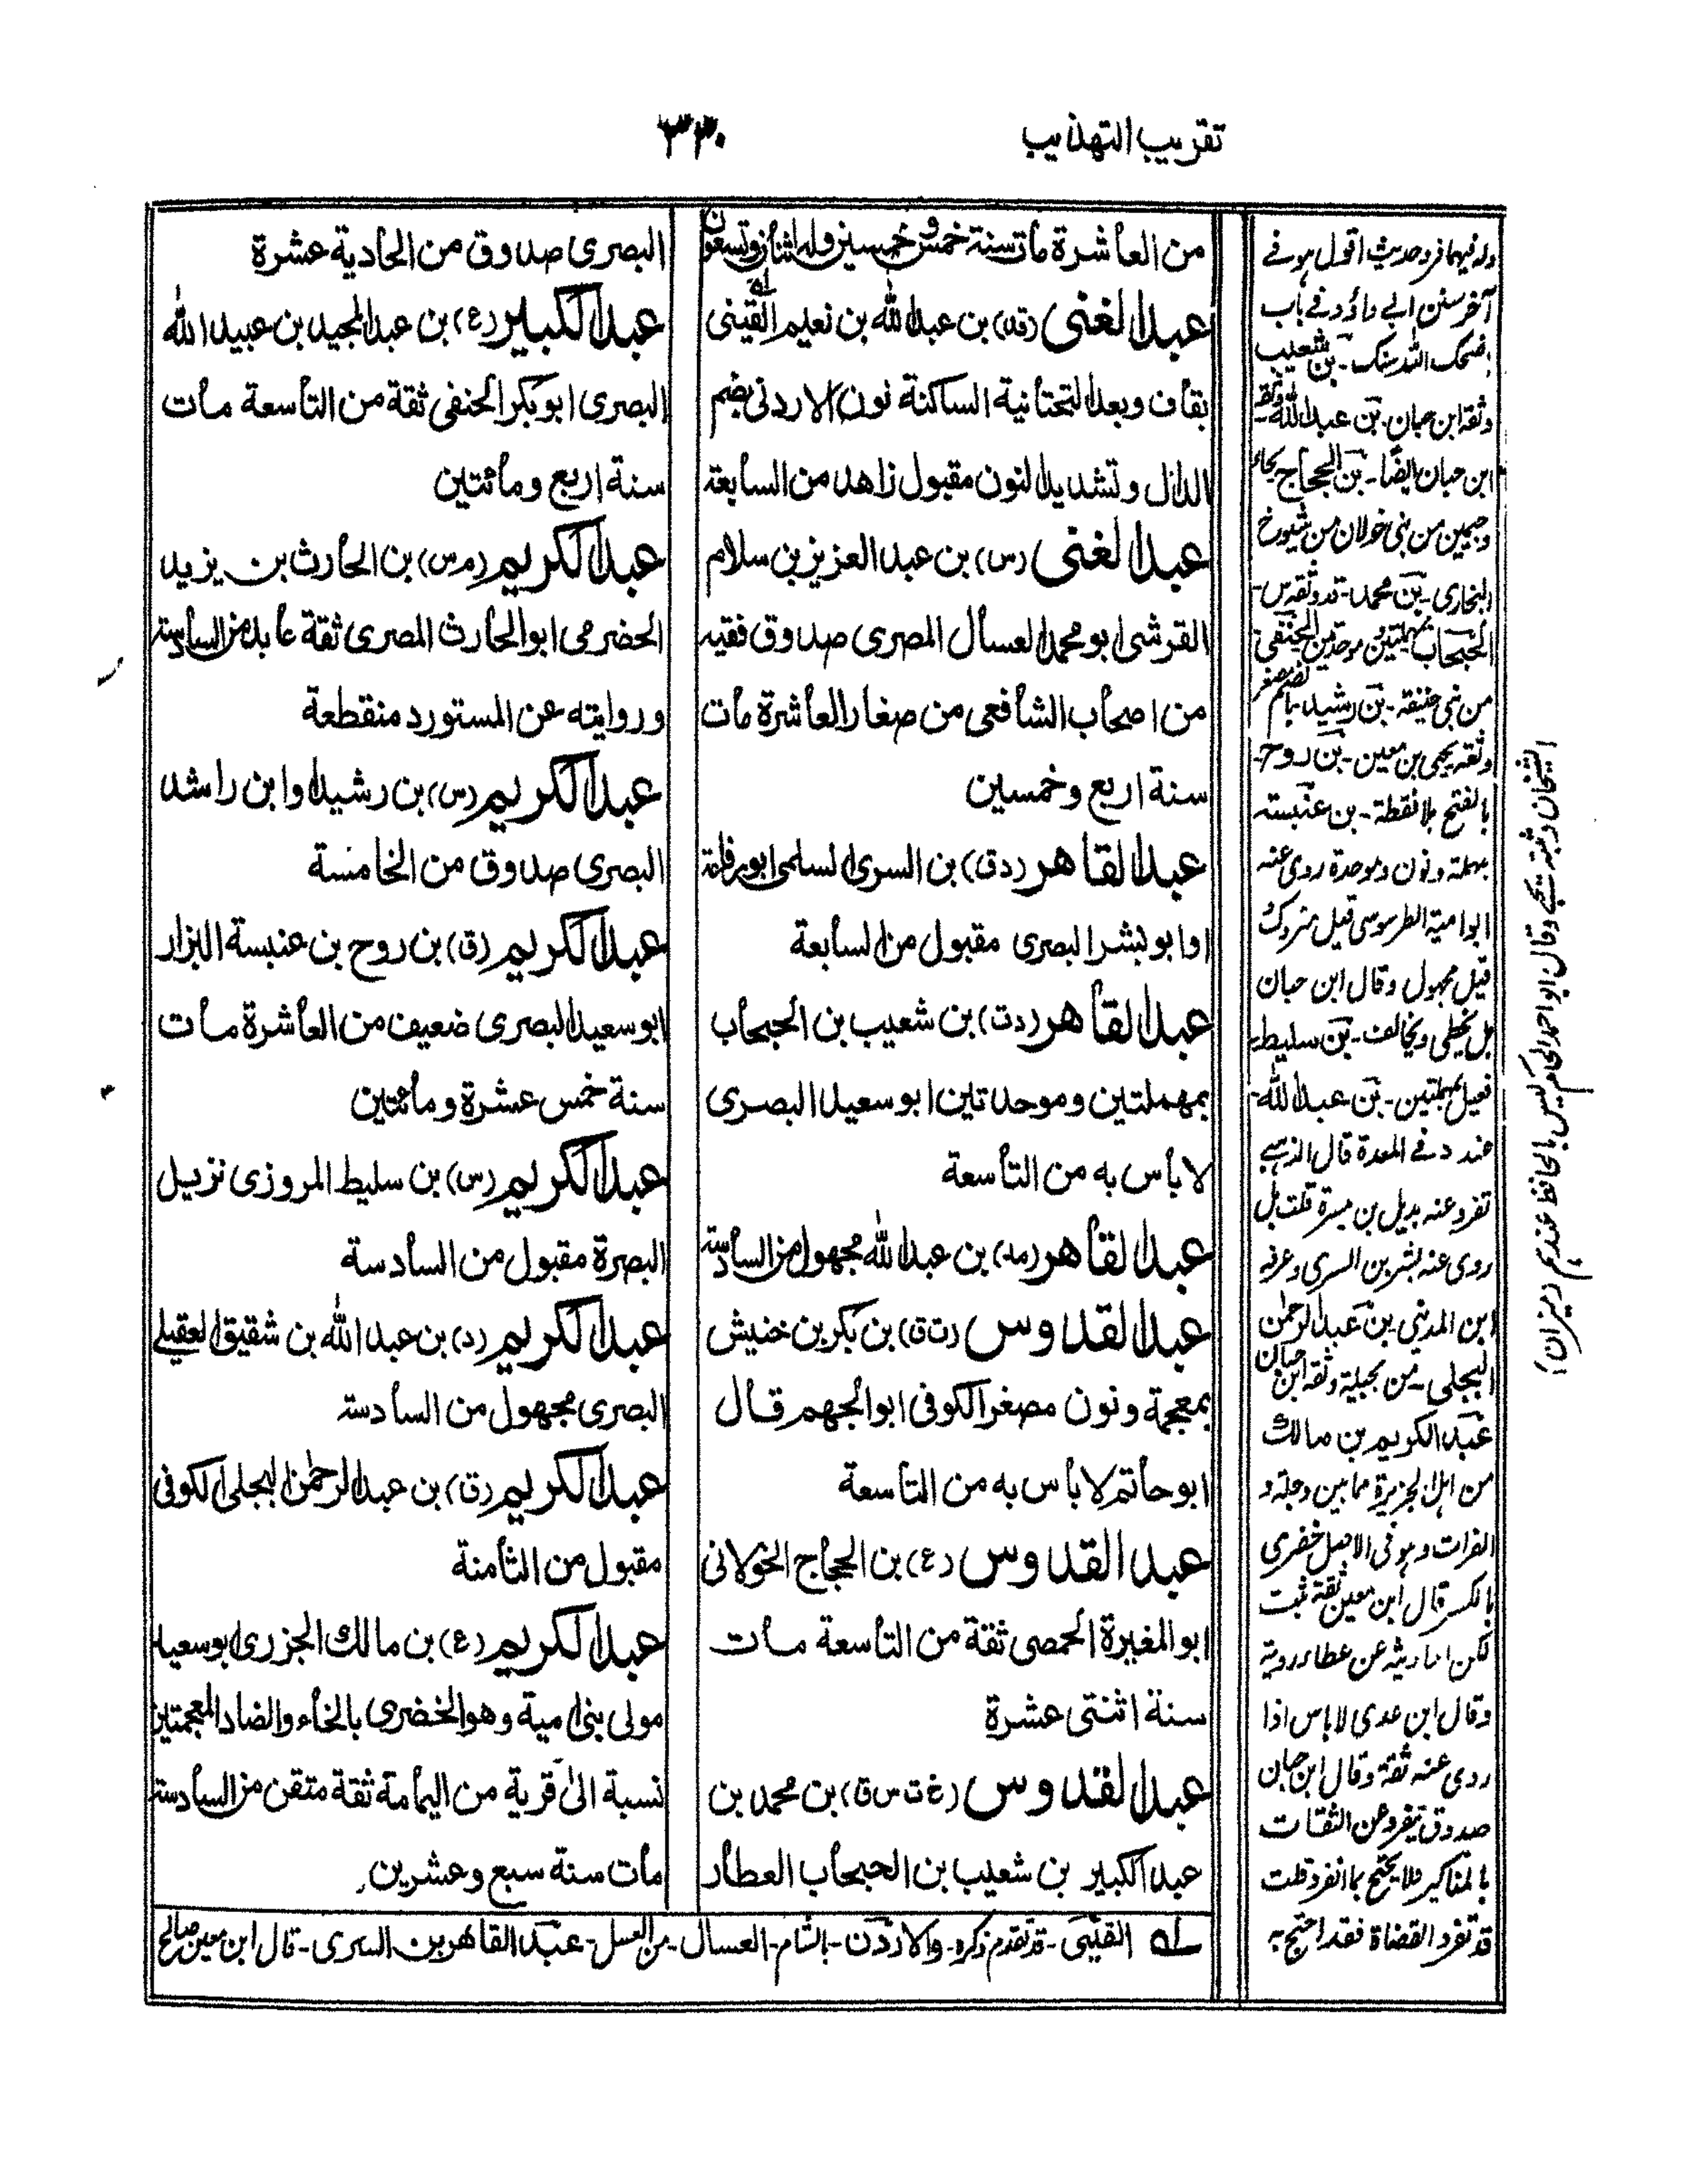 تقريب التهذيب
٣٣٠
من العاشرة مات سنة خمس و خمسين وله اثنان وتسعون
عبد الغنى (قد) بن عبد الله بن نعيم القينى
بقاف وبعد التحتانية الساكنة نون الاردنى بضم
الدال وتشديد النون مقبول زاهد من السابعة
عبد الغنى (س) بن عبد العزيز بن سلام
القرشى ابو محمد العسال المصرى صدوق فقيه
من اصحاب الشافعى من صغار العاشرة مات
سنة اربع وخمسين
عبد القاهر (دق) بن السرى السلمى ابو رفاعة
او ابو بشر البصرى مقبول من السابعة
عبد القاهر (دت) بن شعيب بن الحبحاب
بمهملتين وموحدتين ابو سعيد البصرى
لا بأس به من التاسعة
عبد القاهر (مد) بن عبد الله مجهول من السادسة
عبد القدوس (ت ق) بن بكر بن خنيش
بمعجمة ونون مصغرا الكوفى ابو الجهم قال
ابو حاتم لا بأس به من التاسعة
عبد القدوس (ع) بن الحجاج الخولانى
ابو المغيرة الحمصى ثقة من التاسعة مات
سنة اثنتى عشرة
عبد القدوس (خ ت س ق) بن محمد بن
عبد الكبير بن شعيب بن الحبحاب العطار
البصرى صدوق من الحادية عشرة
عبد الكبير (ع) بن عبد المجيد بن عبيد الله
البصرى ابو بكر الحنفى ثقة من التاسعة مات
سنة اربع ومائتين
عبد الكريم (م س) بن الحارث بن يزيد
الحضرمى ابو الحارث المصرى ثقة عابد من السادسة
وروايته عن المستورد منقطعة
عبد الكريم (س) بن رشيد او ابن راشد
البصرى صدوق من الخامسة
عبد الكريم (ق) بن روح بن عنبسة البزار
ابو سعيد البصرى ضعيف من العاشرة مات
سنة خمس عشرة ومائتين
عبد الكريم (س) بن سليط المروزى نزيل
البصرة مقبول من السادسة
عبد الكريم (د) بن عبد الله بن شقيق العقيلى
البصرى مجهول من السادسة
عبد الكريم (ق) بن عبد الرحمن البجلى الكوفى
مقبول من الثامنة
عبد الكريم (ع) بن مالك الجزرى ابو سعيد
مولى بنى امية وهو الخضرى بالخاء والضاد المعجمتين
نسبة الى قرية من اليمامة ثقة متقن من السادسة
مات سنة سبع وعشرين
وله فيهما فرد حديث اقول هو فى
آخر سنن ابى داؤد فى باب
اضحك الله سنك - بن شعيب
وثقه ابن حبان - بن عبد الله وثقه
ابن حبان ايضا - بن الحجاج بحاء
وجيمين من بنى خولان من شيوخ
البخارى - بن محمد - قد وثقه س -
الحبحاب بمهملتين وموحدتين الحنفى
من بنى حنيفة - بن رشيد بالضم مصغر
وثقه يحيى بن معين - بن روح -
بالفتح بلا نقطة - بن عنبسة
بمهملة ونون وموحدة روى عنه
ابو امية الطرسوسى قيل متروك
قيل مجهول وقال ابن حبان
بل يخطى ويخالف - بن سليط
فعيل بمهملتين - بن عبد الله -
عند د فى العدة قال الذهبى
تفرد عنه بديل بن ميسرة قلت بل
روى عنه بشر بن السرى وعرفه
ابن المدينى - بن عبد الرحمن
البجلى - من بجيلة وثقه ابن حبان
عبد الكريم بن مالك
من اهل الجزيرة مما بين دجلة و
الفرات وهو فى الاصل خضرى
بالكسر قال ابن معين ثقة ثبت
لكن احاديثه عن عطاء ردية
وقال ابن عدى لا باس اذا
روى عنه ثقة وقال ابن حبان
صدوق يتفرد عن الثقات
بالمناكير فلا يحتج بما انفرد قلت
قد تفرد القضاة فقد احتج به
الشيخان وثبته شيخ وقال ابو احمد الحاكم ليس بالحافظ عندهم (ميزان)
له القينى - قد تقدم ذكره - والاردن - بالشام - العسال - من العسل - عبد القاهر بن السرى - قال ابن معين صالح